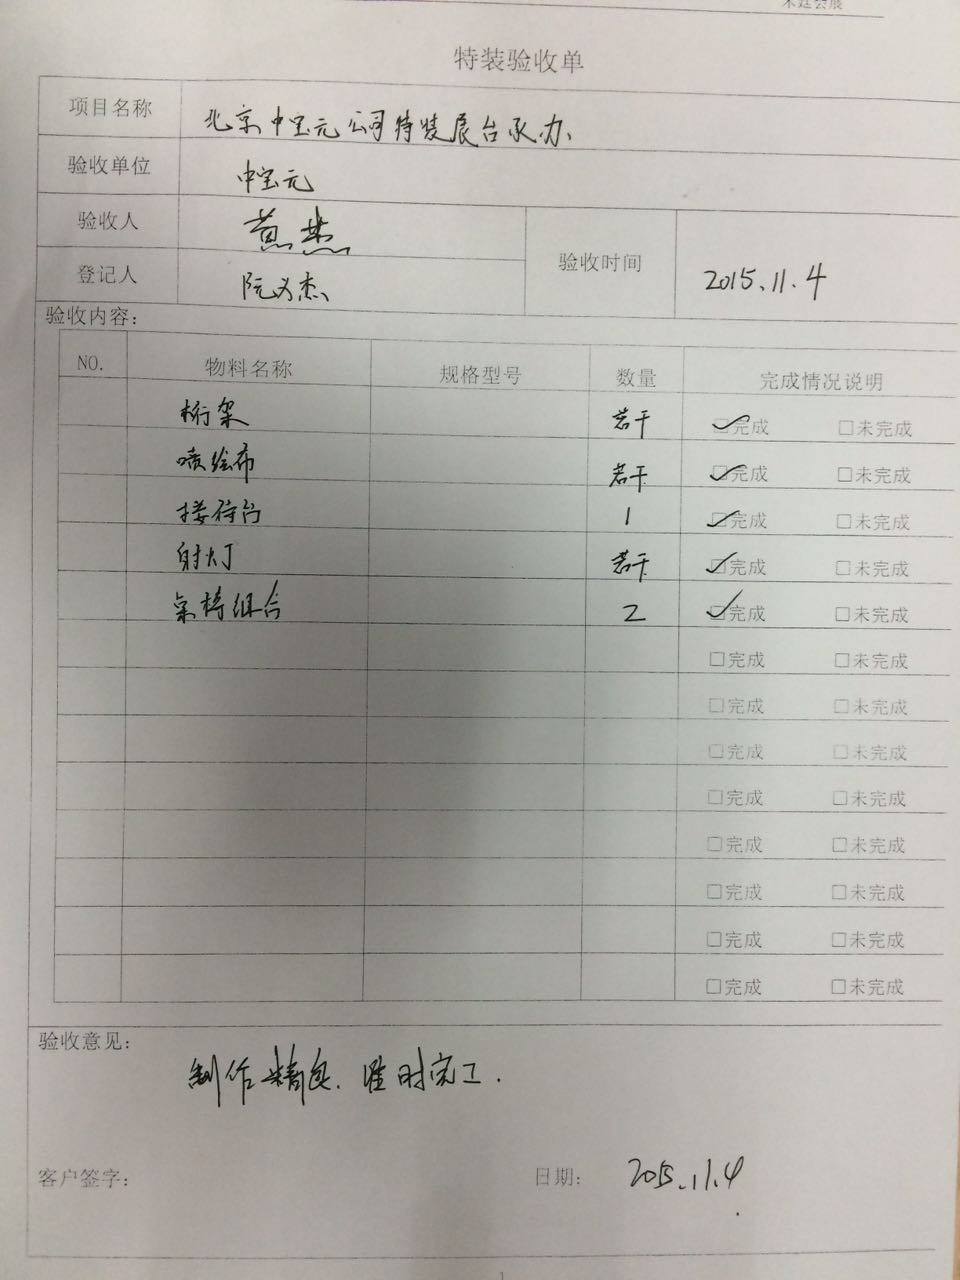 特装验收单
项目名称 北京中宝元公司特装展台承办
验收单位 中宝元
验收人 黄燕
登记人 阮义杰
验收时间 2015.11.4
验收内容:
NO. 物料名称 规格型号 数量 完成情况说明
桁架 若干 ☑完成 □未完成
喷绘布 若干 ☑完成 □未完成
接待台 1 ☑完成 □未完成
射灯 若干 ☑完成 □未完成
桌椅组合 2 ☑完成 □未完成
□完成 □未完成
□完成 □未完成
□完成 □未完成
□完成 □未完成
□完成 □未完成
□完成 □未完成
□完成 □未完成
□完成 □未完成
验收意见:
制作精良. 准时完工.
客户签字: 日期: 2015.11.4
1